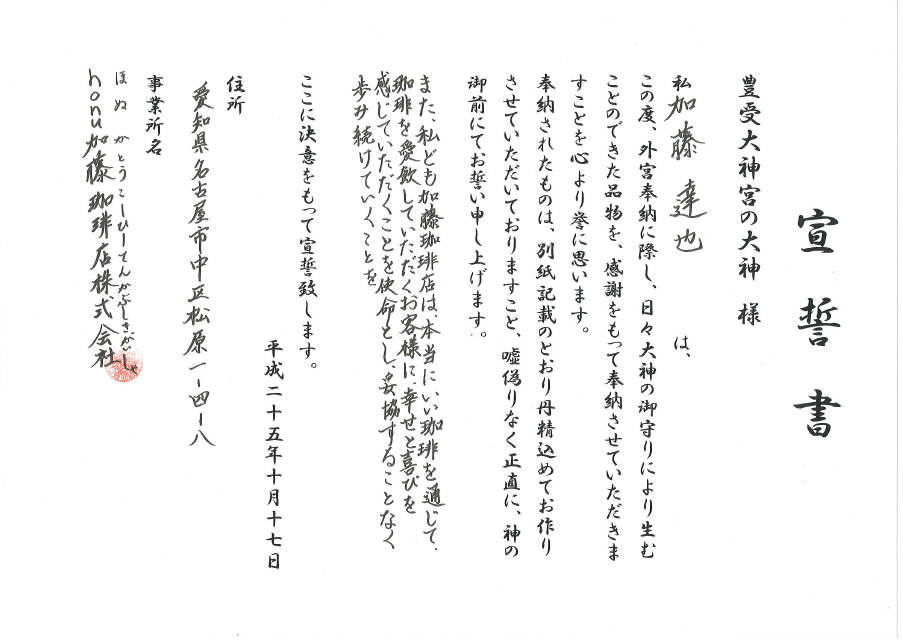 宣誓書
豊受大神宮の大神　様
私 加藤 達也　は、
この度、外宮奉納に際し、日々大神の御守りにより生む
ことのできた品物を、感謝をもって奉納させていただきま
すことを心より誉に思います。
奉納されたものは、別紙記載のとおり丹精込めてお作り
させていただいておりますこと、嘘偽りなく正直に、神の
御前にてお誓い申し上げます。
また、私ども加藤珈琲店は、本当にいい珈琲を通じて、
珈琲を愛飲していただくお客様に、幸せと喜びを
感じていただくことを使命とし、妥協することなく
歩み続けていくことを
ここに決意をもって宣誓致します。
平成二十五年十月十七日
住所
愛知県名古屋市中区松原一-四-八
事業所名
ほぬ かとうこーひーてんかぶしきがいしゃ
honu加藤珈琲店株式会社